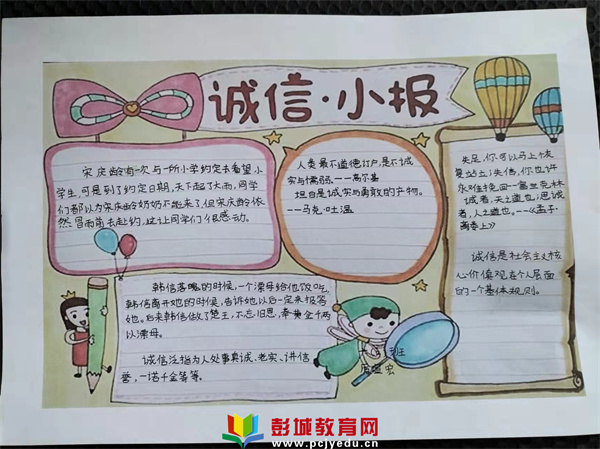 诚信·小报
宋庆龄有一次与一所小学约定去看望小
学生,可是到了约定日期,天下起了大雨,同学
们都以为宋庆龄奶奶不能来了,但宋庆龄依
然冒雨前去赴约,这让同学们很感动。
人类最不道德订户,是不诚
实与懦弱。——高尔基
坦白是诚实与勇敢的产物。
——马克·吐温
失足,你可以马上恢
复站立;失信,你也许
永难挽回——富兰克林
诚者,天之道也;思诚
者,人之道也。——《孟子·
离娄上》
诚信是社会主义核
心价值观在个人层面
的一个基本规则。
韩信落魄的时候,一个漂母给他饭吃,
韩信离开她的时候,告诉她以后一定来报答
她。后来韩信做了楚王,不忘旧恩,奉黄金千两
以漂母。
诚信泛指为人处事真诚、老实、讲信
誉,一诺千金等等。
班
宏
彭城教育网
www.pcjyedu.cn